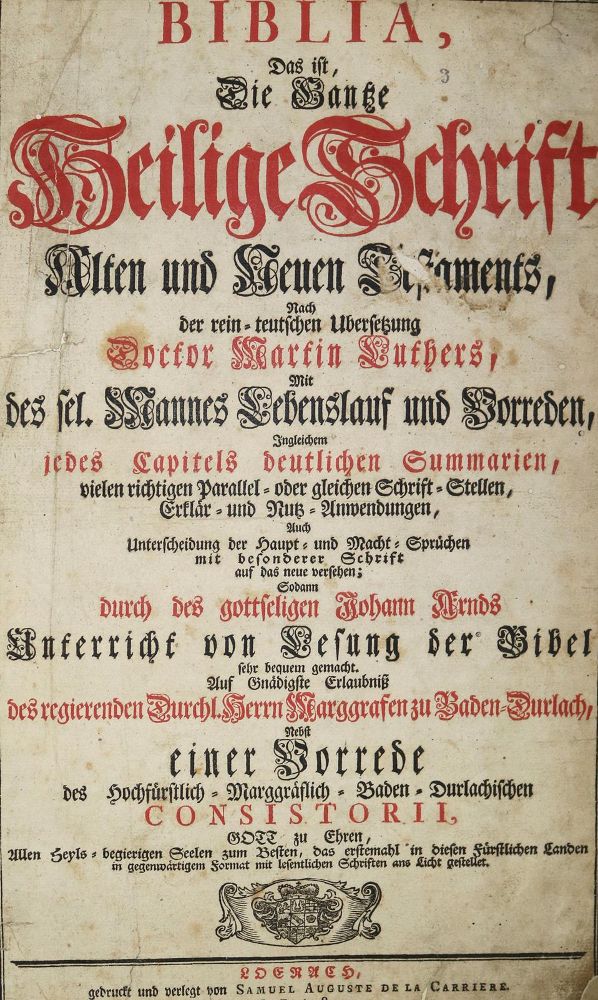 BIBLIA,
Das ist,
3
Die Gantze
Heilige Schrift
Alten und Neuen Testaments,
Nach
der rein-teutschen Ubersetzung
Doctor Martin Luthers,
Mit
des sel. Mannes Lebenslauf und Vorreden,
Ingleichem
jedes Capitels deutlichen Summarien,
vielen richtigen Parallel- oder gleichen Schrift-Stellen,
Erklär- und Nutz-Anwendungen,
Auch
Unterscheidung der Haupt- und Macht-Sprüchen
mit besonderer Schrift
auf das neue versehen;
Sodann
durch des gottseligen Johann Arnds
Unterricht von Lesung der Bibel
sehr bequem gemacht.
Auf Gnädigste Erlaubniß
des regierenden Durchl. Herrn Marggrafen zu Baden-Durlach,
Nebst
einer Vorrede
des Hochfürstlich-Marggräflich-Baden-Durlachischen
CONSISTORII,
GOTT zu Ehren,
Allen Heyls-begierigen Seelen zum Besten, das erstemahl in diesen Fürstlichen Landen
in gegenwärtigem Format mit lesentlichen Schriften ans Licht gestellet.
LOERACH,
gedruckt und verlegt von SAMUEL AUGUSTE DE LA CARRIERE.